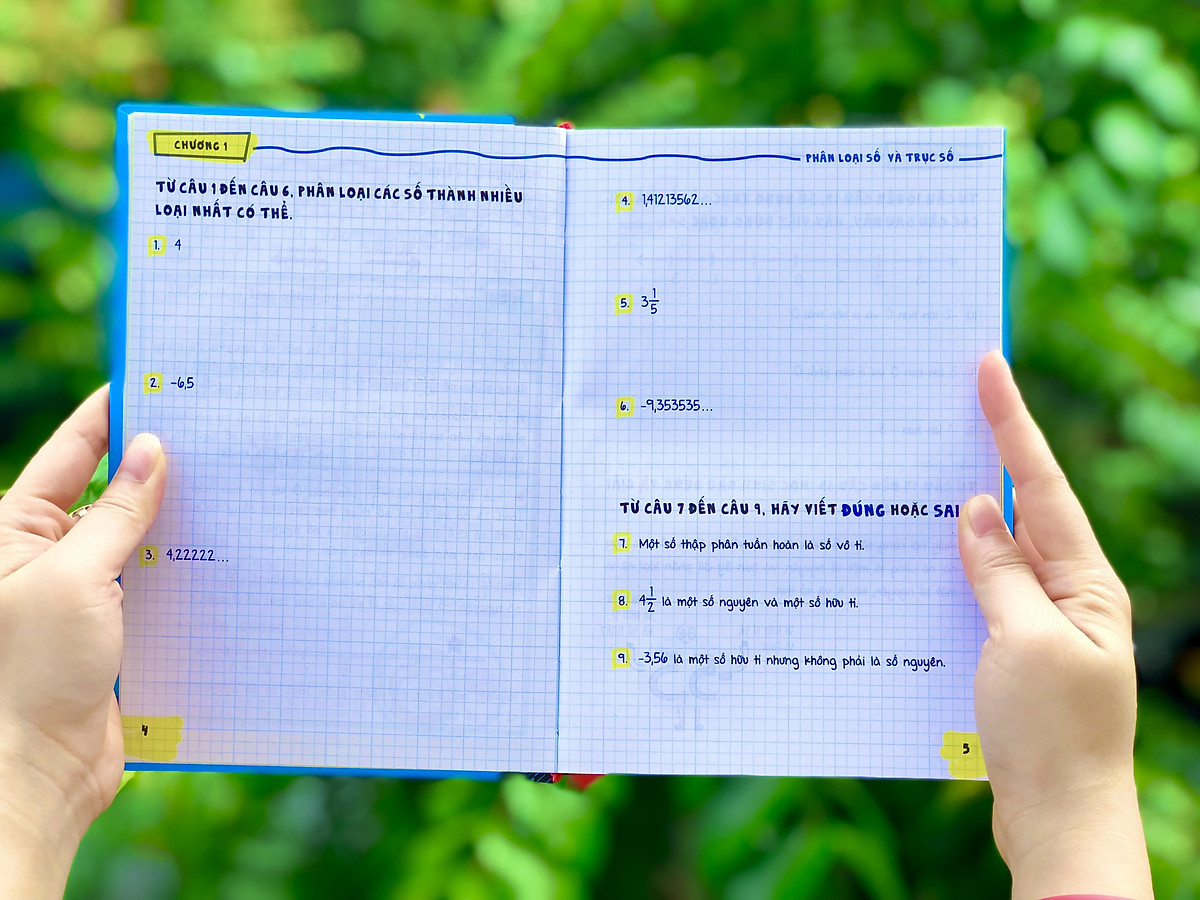 CHƯƠNG 1
TỪ CÂU 1 ĐẾN CÂU 6, PHÂN LOẠI CÁC SỐ THÀNH NHIỀU
LOẠI NHẤT CÓ THỂ.
1. 4
2. -6,5
3. 4,22222...
4
PHÂN LOẠI SỐ VÀ TRỤC SỐ
4. 1,41213562...
5. 3 1/5
6. -9,353535...
TỪ CÂU 7 ĐẾN CÂU 9, HÃY VIẾT ĐÚNG HOẶC SAI
7. Một số thập phân tuần hoàn là số vô tỉ.
8. 4 1/2 là một số nguyên và một số hữu tỉ.
9. -3,56 là một số hữu tỉ nhưng không phải là số nguyên.
5